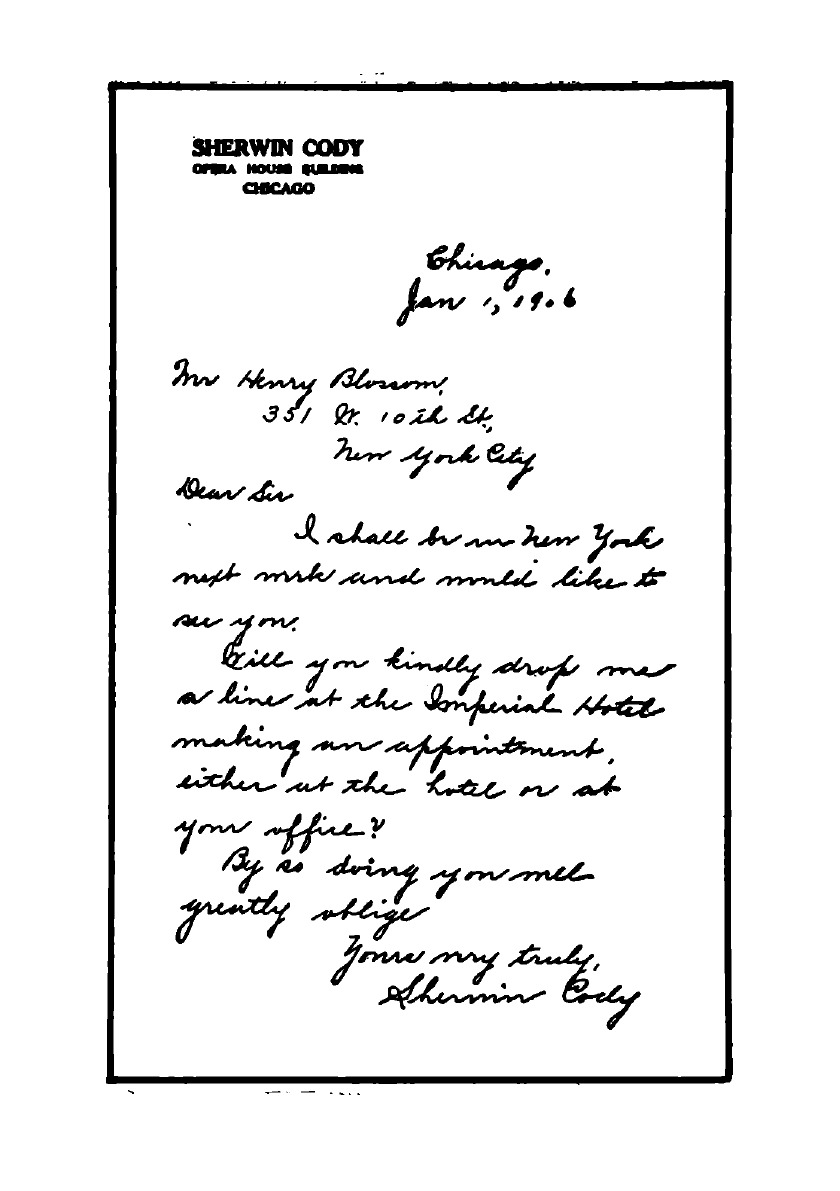 SHERWIN CODY
OPERA HOUSE BUILDING
CHICAGO
Chicago,
Jan 1, 1906
Mr Henry Blossom,
351 W. 10th St.,
New York City
Dear Sir
I shall be in New York
next week and would like to
see you.
Will you kindly drop me
a line at the Imperial Hotel
making an appointment,
either at the hotel or at
your office?
By so doing you will
greatly oblige
Yours very truly,
Sherwin Cody